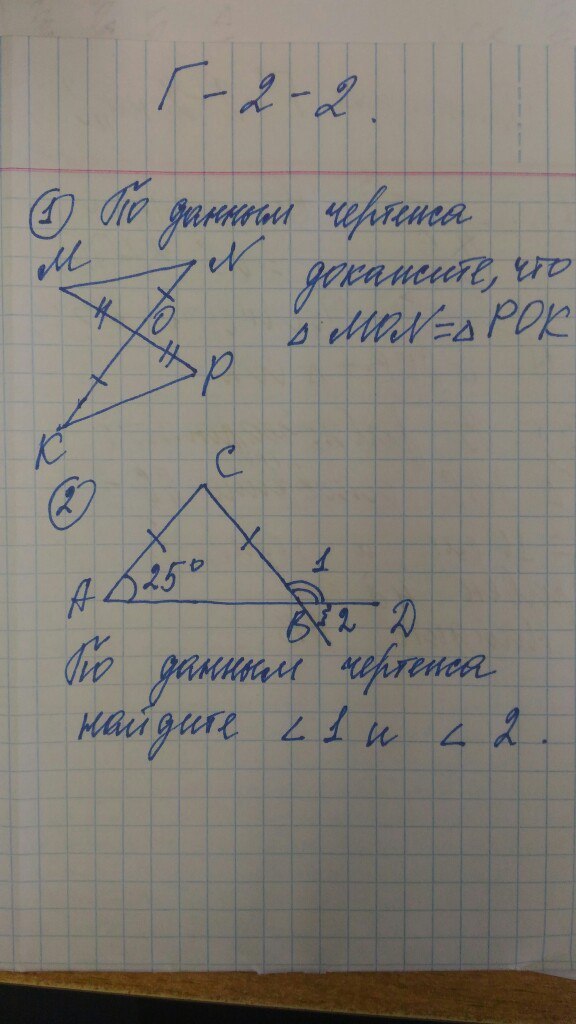 Г - 2 - 2.
① По данным чертежа
M N
докажите, что
O
△ MON = △ POK
P
K
② C
1
A 25° B 2 D
По данным чертежа
найдите ∠ 1 и ∠ 2.